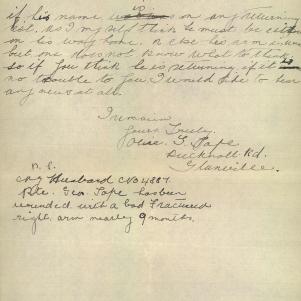 if his name is on any returning
list. As I myself think he must be
on his way home. or else his arm is
but one does not know what to think
so if you think he is returning & it is
no trouble to you I would like to hear
any news at all.
I remain
Yours Truly
S. Pape
Rd.
Glanville.
P.S.
my Husband
Pte. Geo. Pape has been
wounded with a bad Fractured
right arm nearly 9 months.